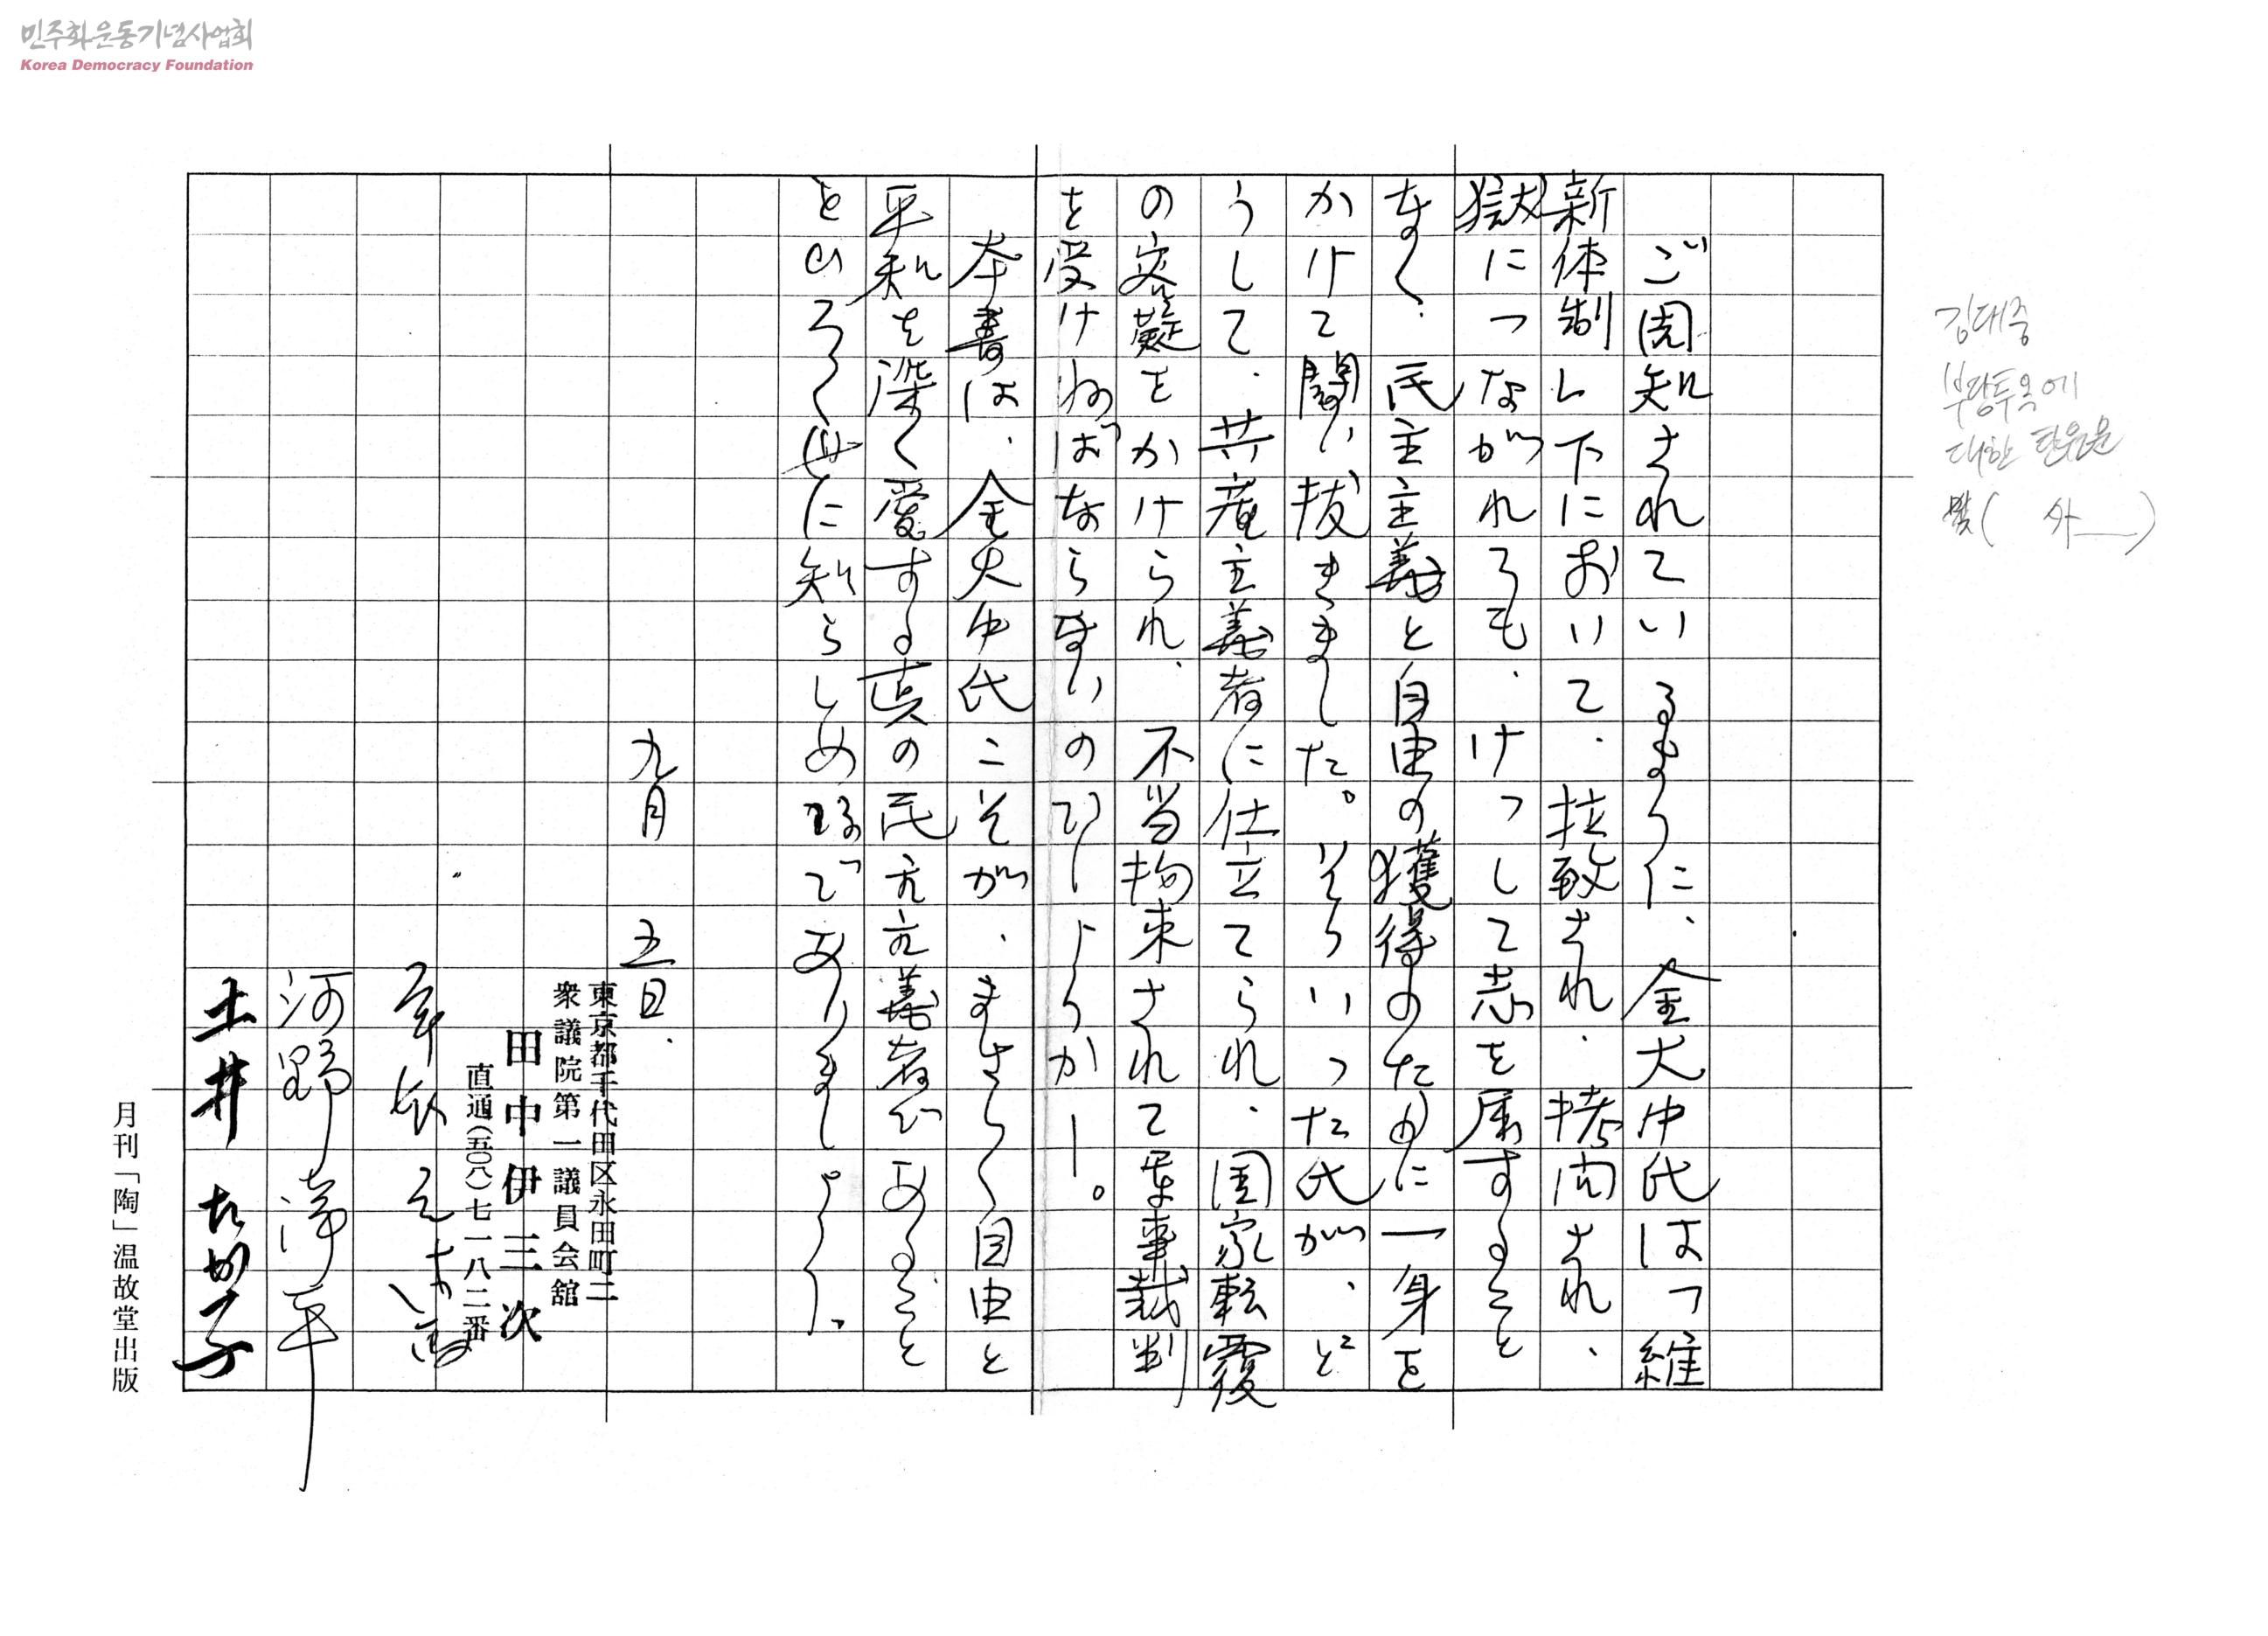 민주화운동기념사업회
Korea Democracy Foundation
김대중
부당투옥에
대한 탄원문
(外)
ご周知されているように、金大中氏は「維
新体制」下において、拉致され、拷問され、
獄につながれろも、けっして志を屈すること
なく、民主主義と自由の獲得のために一身を
かけて闘い抜きました。そういった氏が、ど
うして、共産主義者に仕立てられ、国家転覆
の容疑をかけられ、不当拘束されて軍事裁判
を受けねばならないのでしょうかー。
本書は、金大中氏こそが、まさしく自由と
平和を深く愛する真の民主主義者であること
をひろく世に知らしめ得でありましょう。
九月 五日.
東京都千代田区永田町二
衆議院第一議員会舘
田中伊三次
直通(五〇八)七一八二番
河野洋平
土井たか子
月刊「陶」温故堂出版